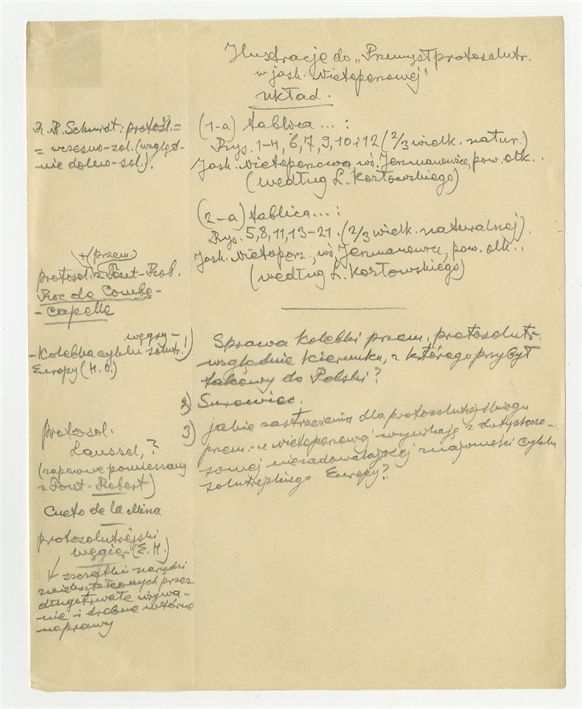 Ilustracje do "Przemysł protosolutr.
w jask. Nietoperzowej"
Układ.
(1-a) tablica...:
Rys. 1-4, 6, 7, 9, 10 i 12 (2/3 wielk. natur.)
Jask. Nietoperzowa wś. Jerzmanowice, pow. olk.
(według L. Kozłowskiego)
(2-a) tablica...:
Rys. 5, 8, 11, 13-21. (2/3 wielk. naturalnej).
Jask. Nietoperz., wś. Jerzmanowice, pow. olk.
(według L. Kozłowskiego)
1) Sprawa kolebki przem. protosolutr.
względnie kierunku, z którego przybył
takowy do Polski?
2) Surowiec.
3) jakie zastrzeżenia dla protosolutrejskiego
przem. z Nietoperzowej wynikają z dotychcza-
sowej niezadowalającej znajomości cyklu
solutrejskiego Europy?
R. R. Schmidt: protosol. =
= wczesno-sol. (względ-
nie dolno-sol.).
+ (przem)
protosol. z Font-Rob.
Roc de Combe-
-Capelle
węgry-
-Kolebka cyklu solutr.
Europy (H. O.)
protosol.
Laussel, ?
z Font-Robert)
Cueto de la Mina
protosolutrejski
węgier (E. H.)
zniekształconych przez
długotrwałe używa-
nie i drobne wtórne
naprawy